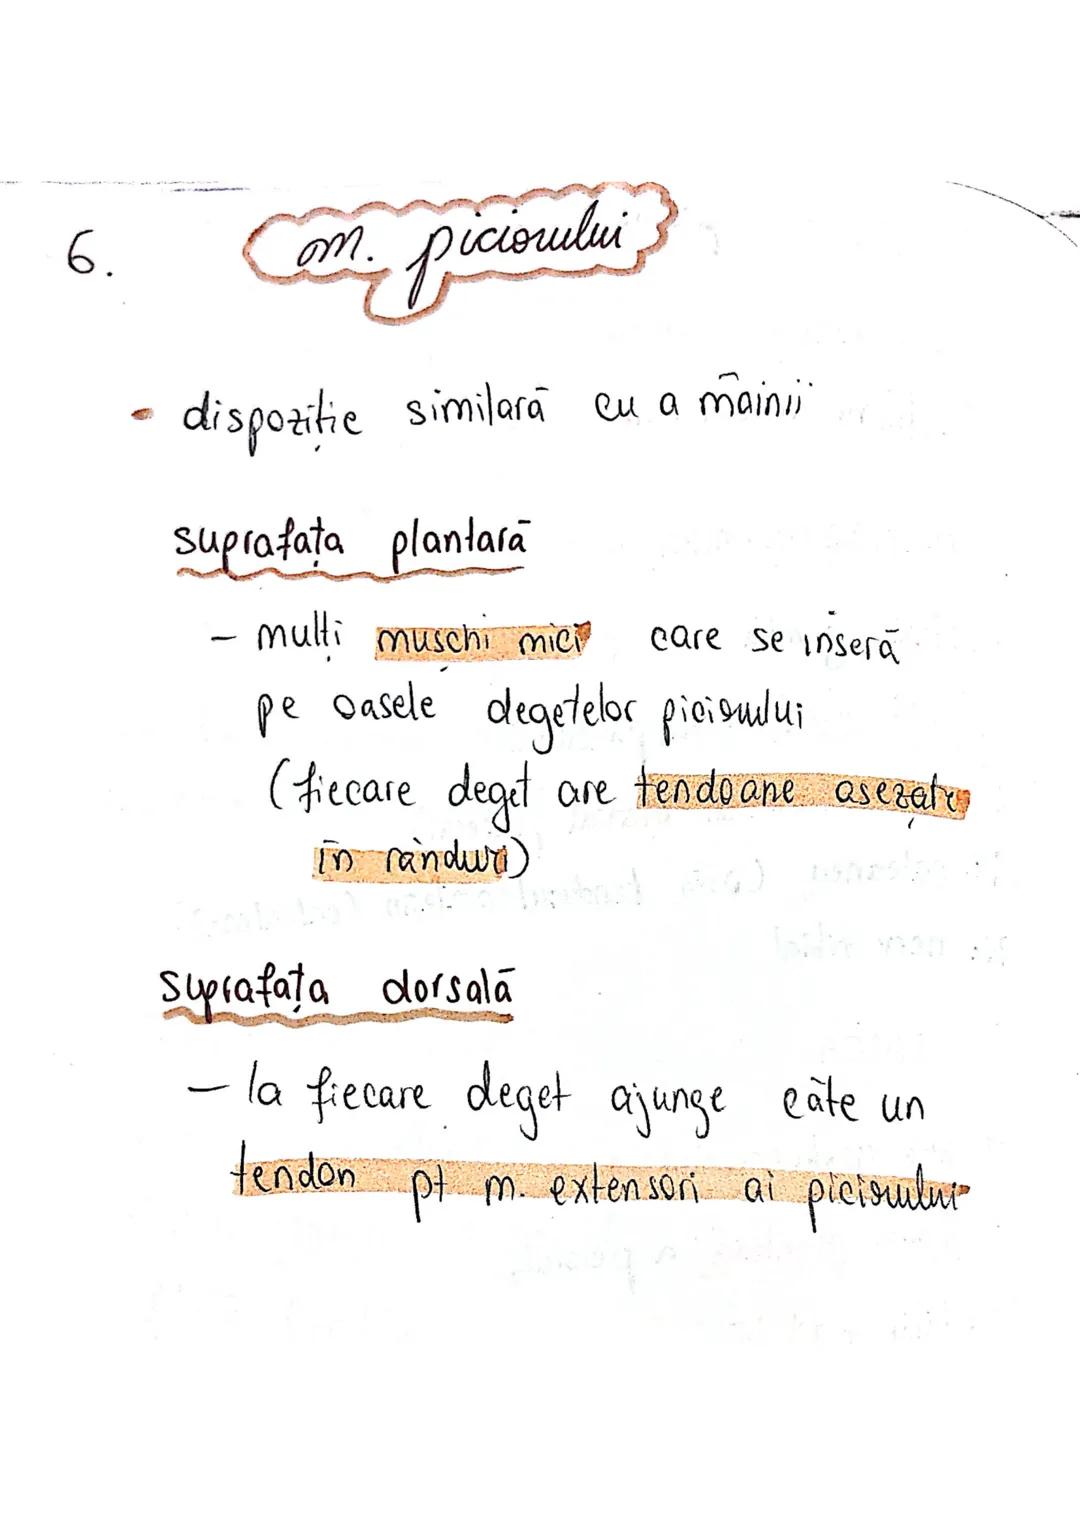 6. m. piciorului
- dispoziție similară cu a mâinii
suprafața plantară
- mulți mușchi mici care se inseră
pe oasele degetelor piciorului
(fiecare deget are tendoane așezate
în rânduri)
suprafața dorsală
- la fiecare deget ajunge câte un
tendon pt m. extensori ai piciorului